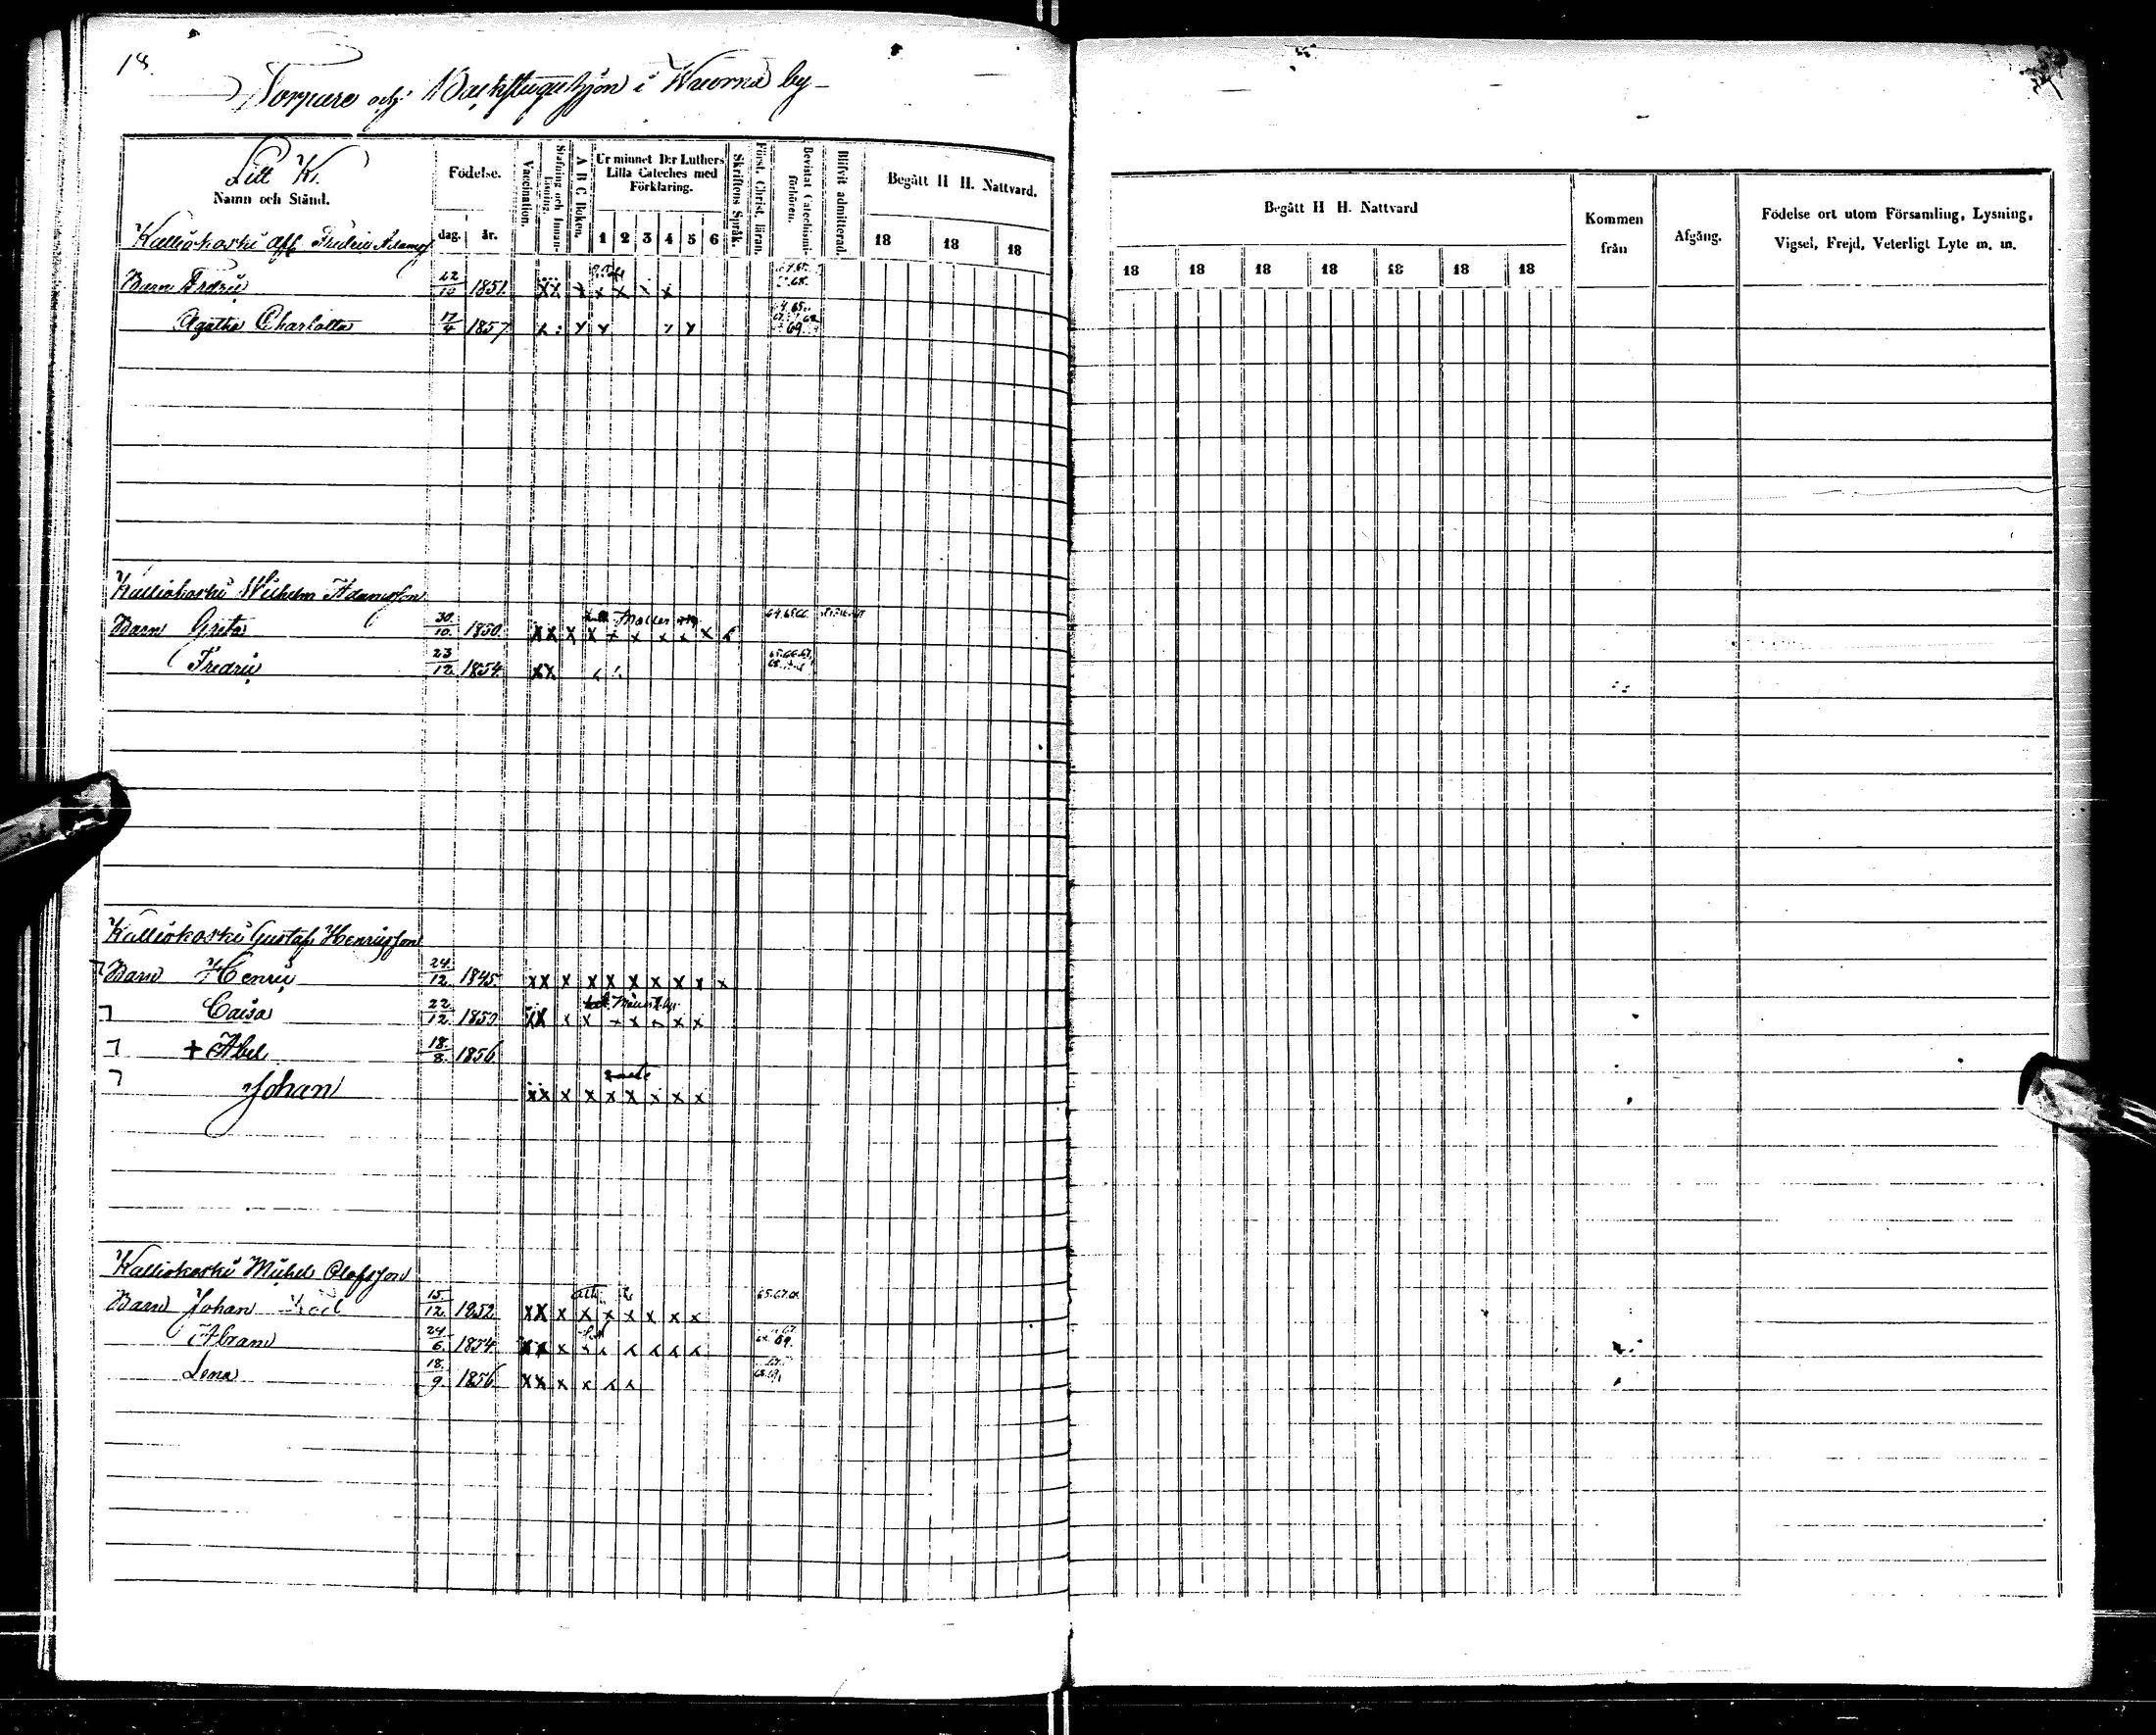 18.
Torpare och Backstuguhjon i Wuorna by
Litt K.
Namn och Stånd.
Födelse.
dag. år.
Vaccination.
Stafning och Innanläsning.
A B C Boken.
Ur minnet D:r Luthers Lilla Cateches med Förklaring.
1 2 3 4 5 6
Skriftens Språk.
Först. Christ. läran.
Bevistat Catechismiförhören.
Blifvit admitterad.
Begått H H. Nattvard.
18 18 18
Begått H H. Nattvard
18 18 18 18 18 18 18
Kommen från
Afgång.
Födelse ort utom Församling, Lysning, Vigsel, Frejd, Veterligt Lyte m. m.
Kalliokoski Fredric Adamss
Barn Fredric 1851. x x x x x x x
Agatha Charlotta 17/4 1857 69.
Kalliokoski Wilhelm Adamsson
Barn Greta 30/10. 1850. x x x x x x x x x 64.65.66.
Fredric 23/12 1854. x x
Kalliokoski Gustaf Henricsson
Barn Henric 24/12 1845. x x x x x x x x x x
Caisa 22/12. 1850 x x x x x x x x x
+ Abel 18./8. 1856
Johan x x x x x x x x x
Kalliokoski Michel Olofsson
Barn Johan 15/12. 1852 x x x x x x x x x 65.67.
Abram 24/6. 1854. 69.
Lena 18./9. 1856. x x x x x x